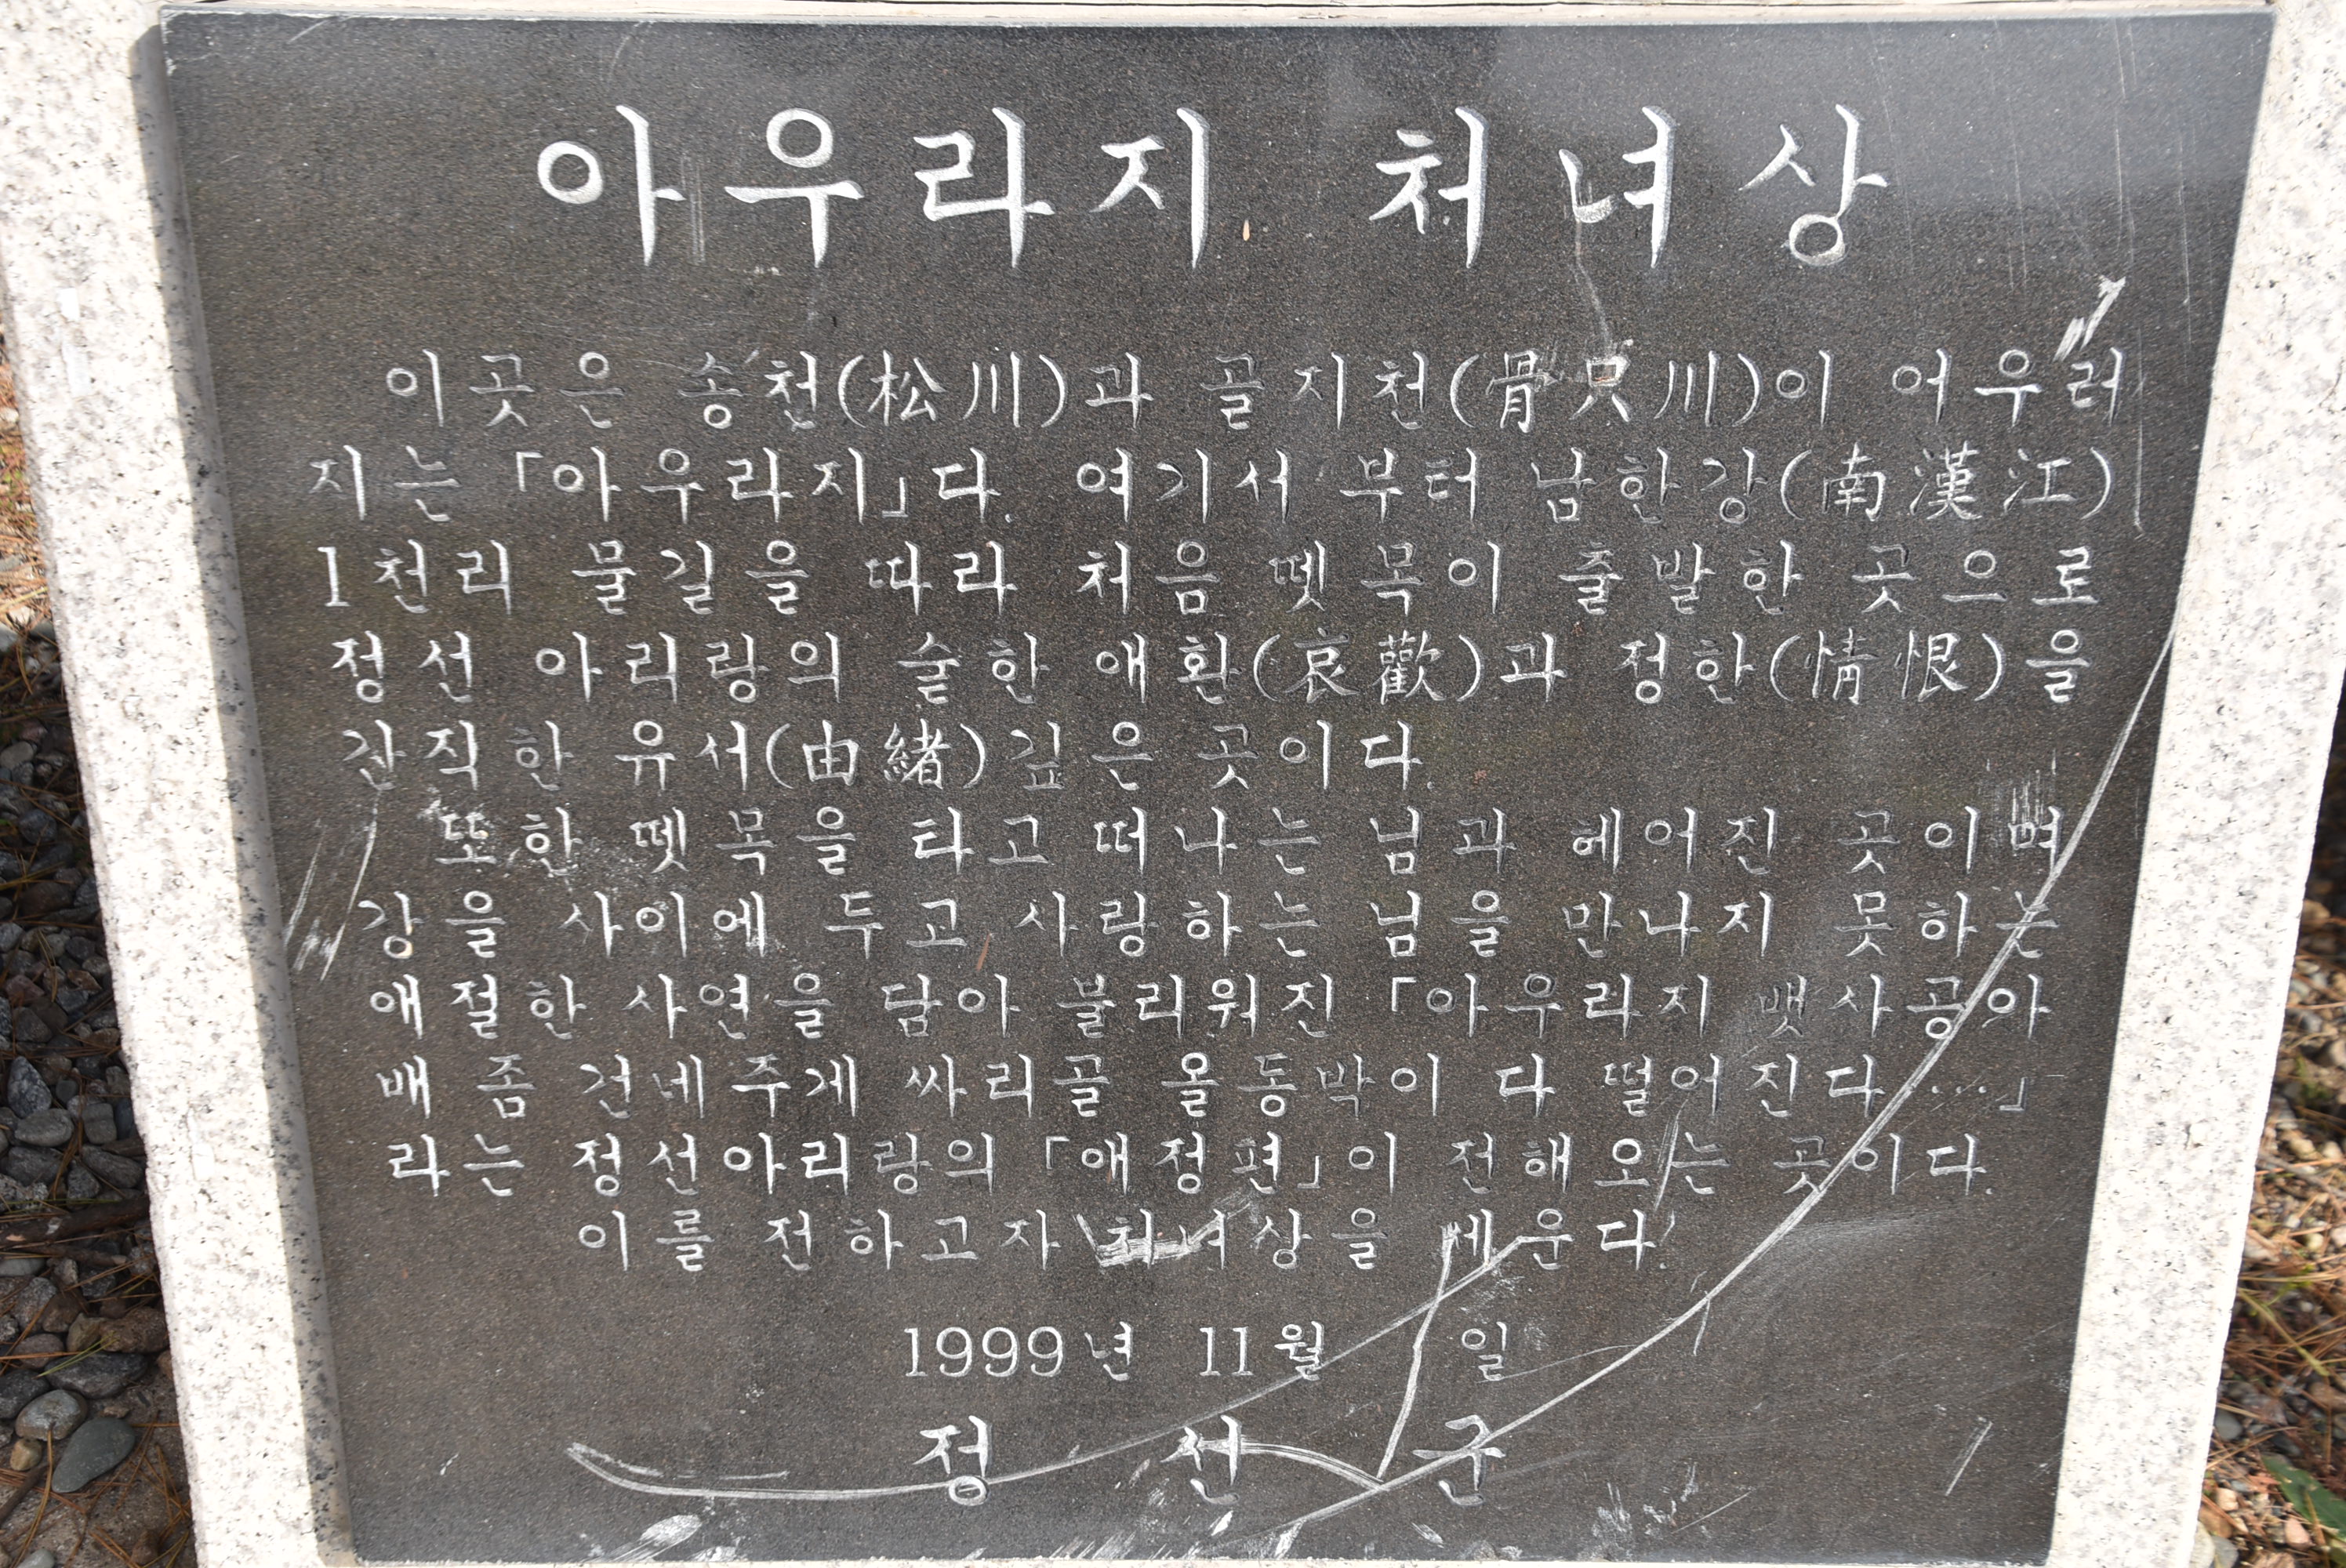 아우라지 처녀상
이곳은 송천(松川)과 골지천(骨只川)이 어우러
지는 「아우라지」다. 여기서 부터 남한강(南漢江)
1천리 물길을 따라 처음 뗏목이 출발한 곳으로
정선 아리랑의 숱한 애환(哀歡)과 정한(情恨)을
간직한 유서(由緖)깊은 곳이다.
또한 뗏목을 타고 떠나는 님과 헤어진 곳이며
강을 사이에 두고 사랑하는 님을 만나지 못하는
애절한 사연을 담아 불리워진 「아우라지 뱃사공아
배 좀 건네주게 싸리골 올동박이 다 떨어진다 ····」
라는 정선아리랑의 「애정편」이 전해오는 곳이다.
이를 전하고자 처녀상을 세운다.
1999년 11월 일
정 선 군